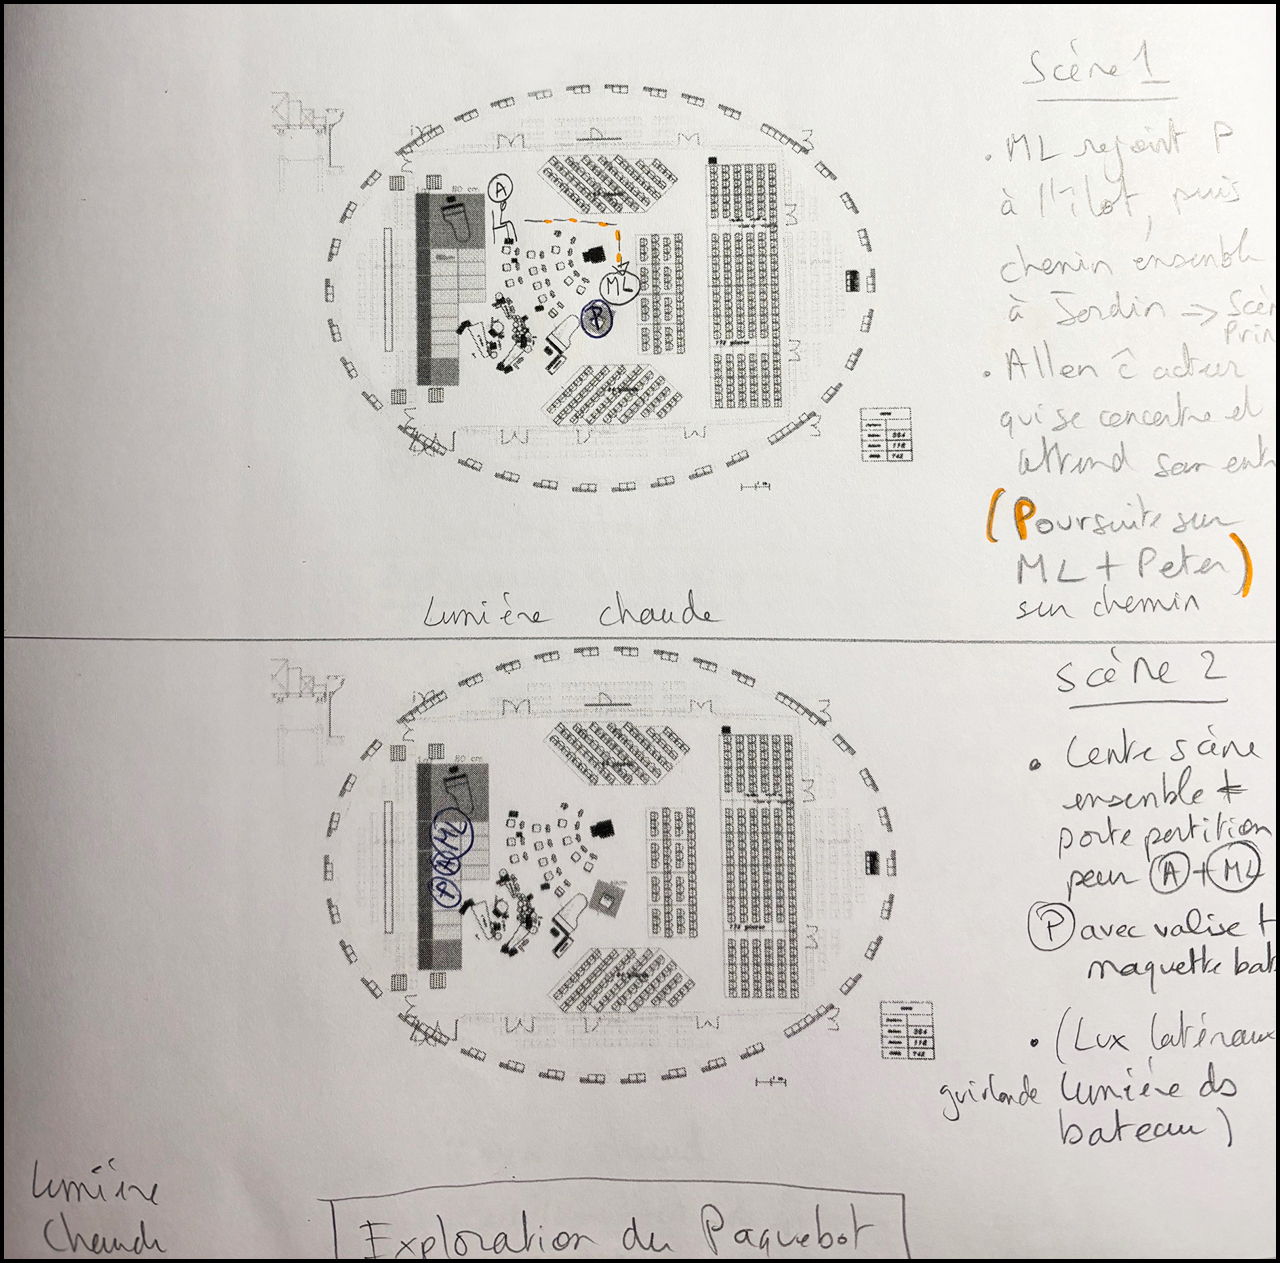 Scène 1
. ML rejoint P
à l'îlot, puis
chemin ensemble
à Jardin → Scèn
Prin
. Allen ê acteur
qui se concentre et
attend son entr
(Poursuite sur
ML + Peter)
sur chemin
80 cm
A
ML
P
384
116
742
Lumière chaude
Scène 2
. Centre scène
ensemble +
porte partition
pour A + ML
P avec valise +
maquette bat
. (Lux latéraux
guirlande lumière ds
bateau)
80 cm
ML
A
P
384
116
742
Lumière
Chaude
Exploration du Paquebot